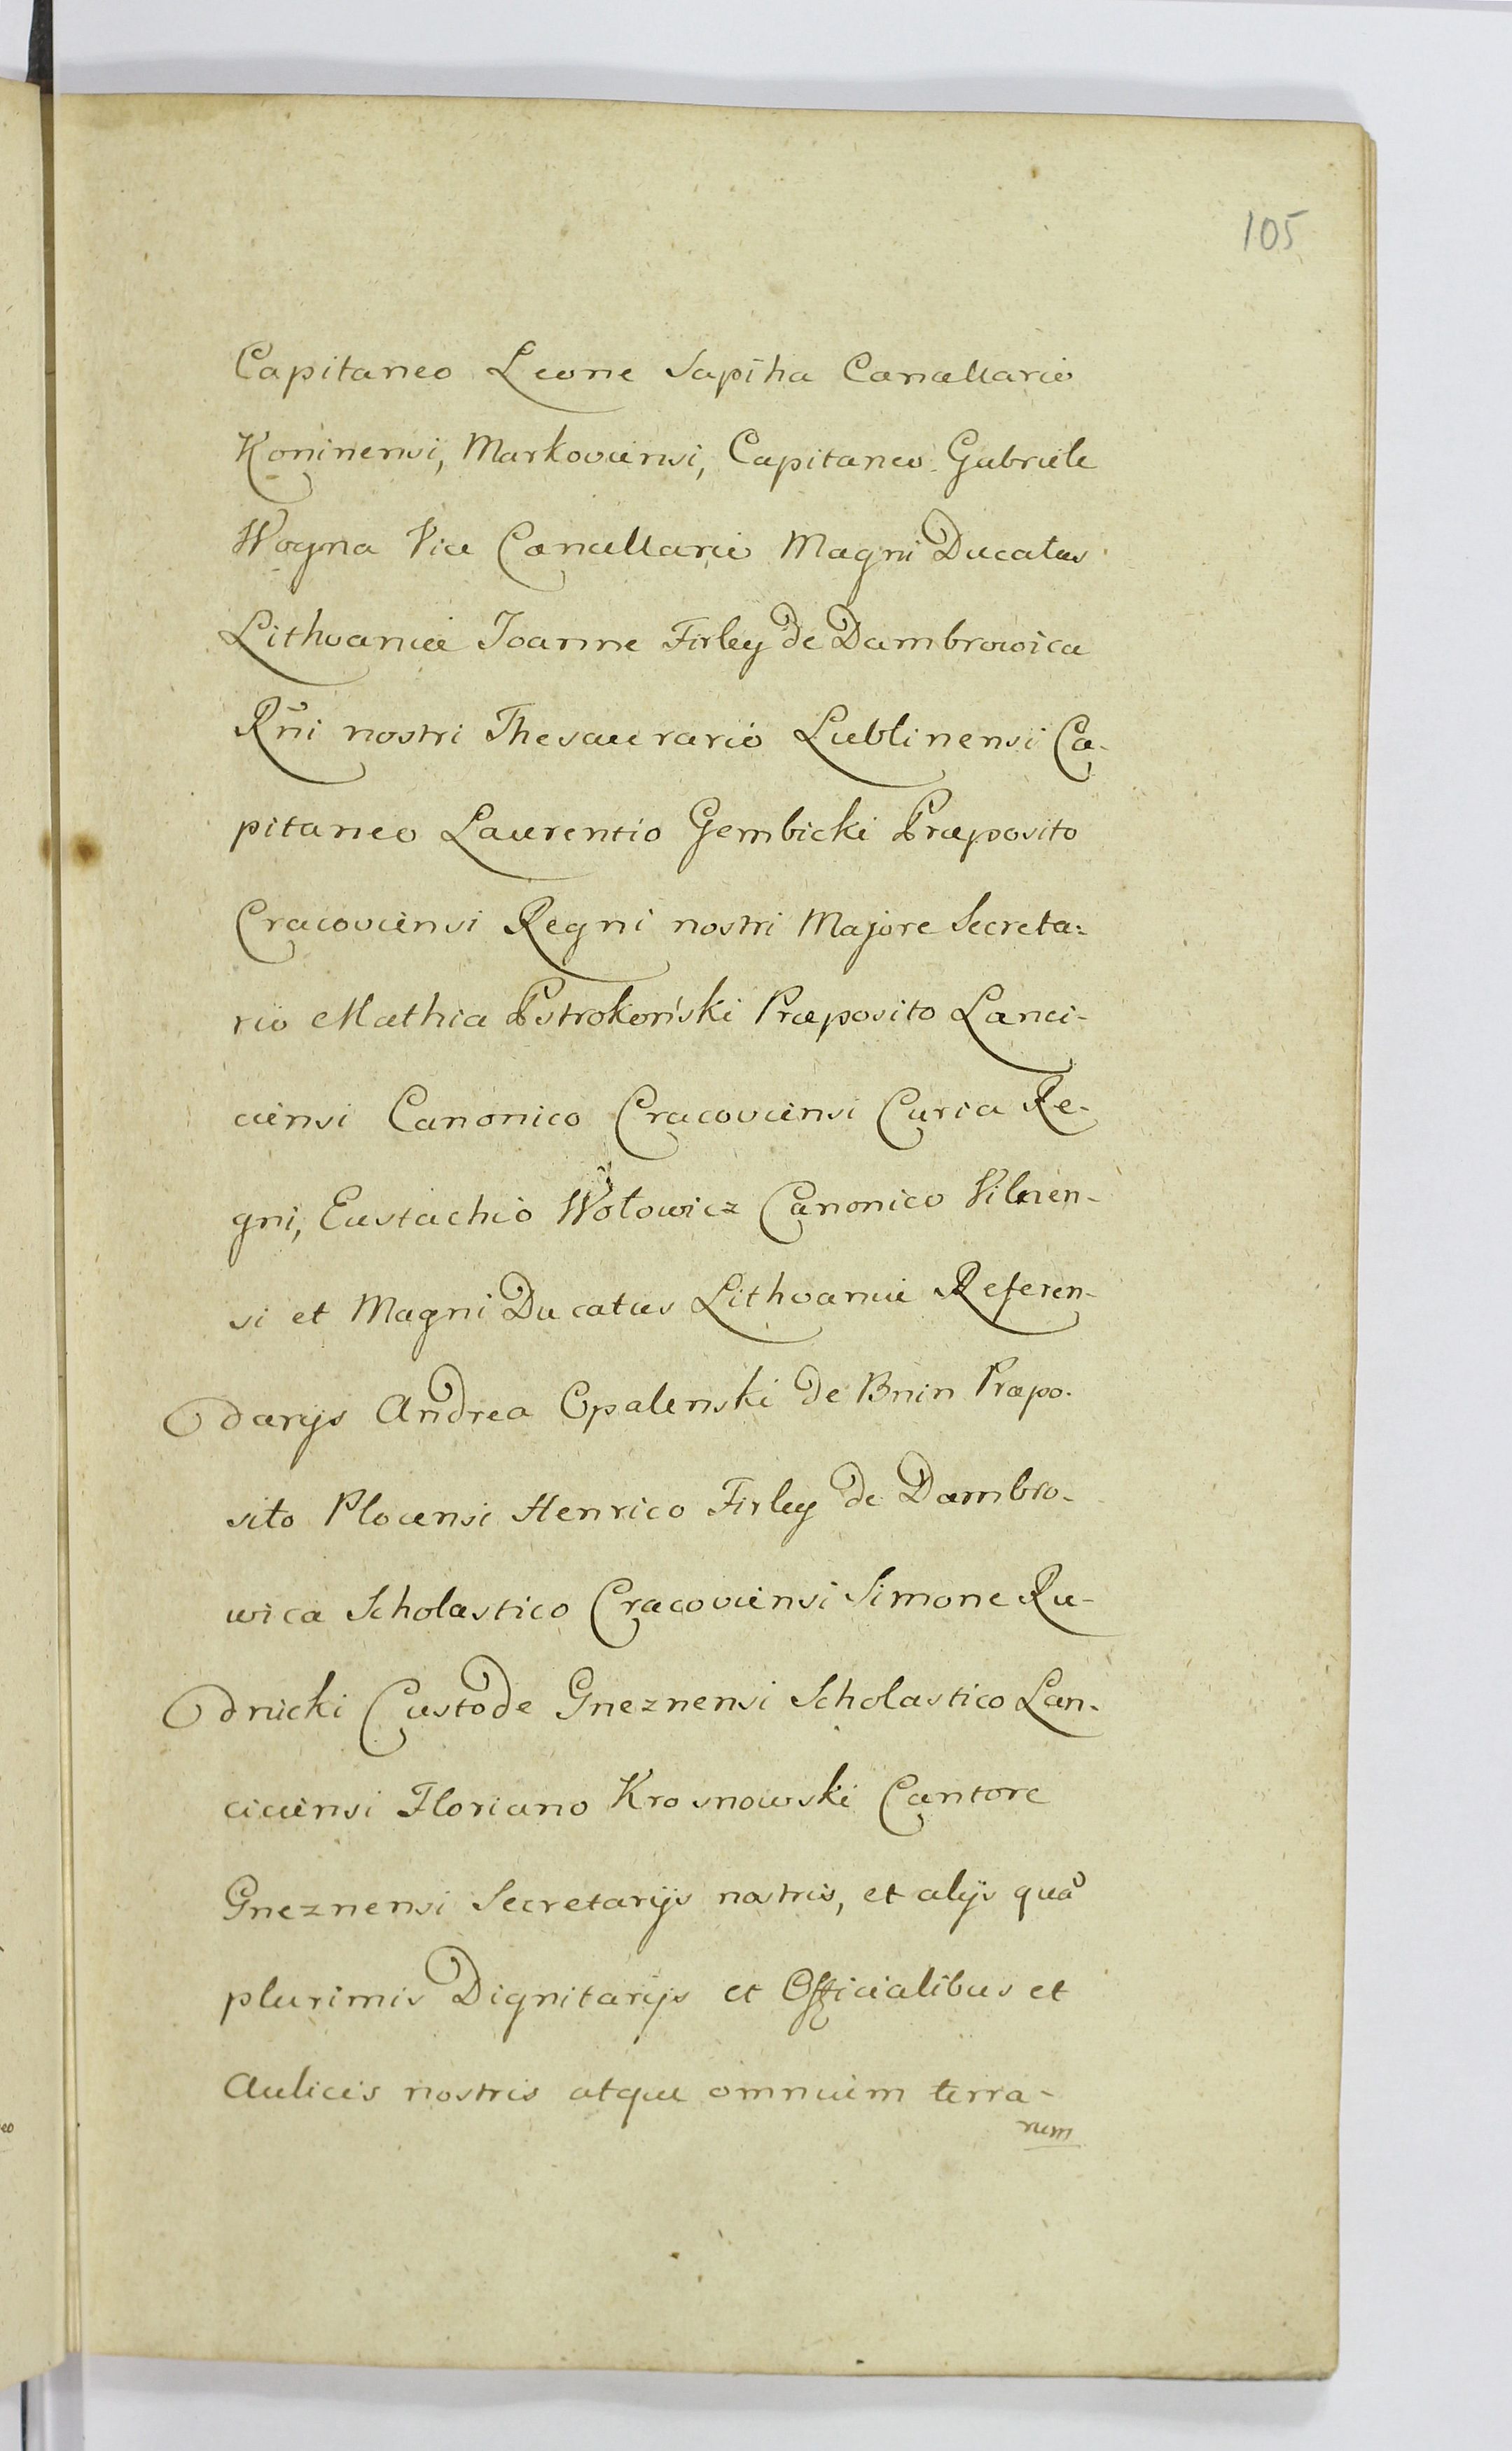 105
Capitaneo Leone Sapiha Cancellario
Koninensi, Markoviensi, Capitaneo Gabriele
Woyna Vice Cancellario Magni Ducatus
Lithvaniæ Joanne Firley de Dambrowica
Rñi nostri Thesaurario Lublinensi Ca-
pitaneo Laurentio Gembicki Præposito
Cracoviensi Regni nostri Majore Secreta=
rio Mathia Pstrokoński Præposito Lanci-
ciensi Canonico Cracoviensi Curia Re-
gni, Eustachio Wołowicz Canonico Vilnen-
si et Magni Ducatus Lithvaniæ Referen-
darijs Andrea Opalenski de Bnin Præpo-
sito Plocensi Henrico Firley de Dambro-
wica Scholastico Cracoviensi Simone Ru-
dnicki Custode Gneznensi Scholastico Lan-
ciciensi Floriano Krosnowski Cantore
Gneznensi Secretarijs nostris, et alijs quã
plurimis Dignitarijs et Officialibus et
Aulicis nostris atque omnium terra-
rum